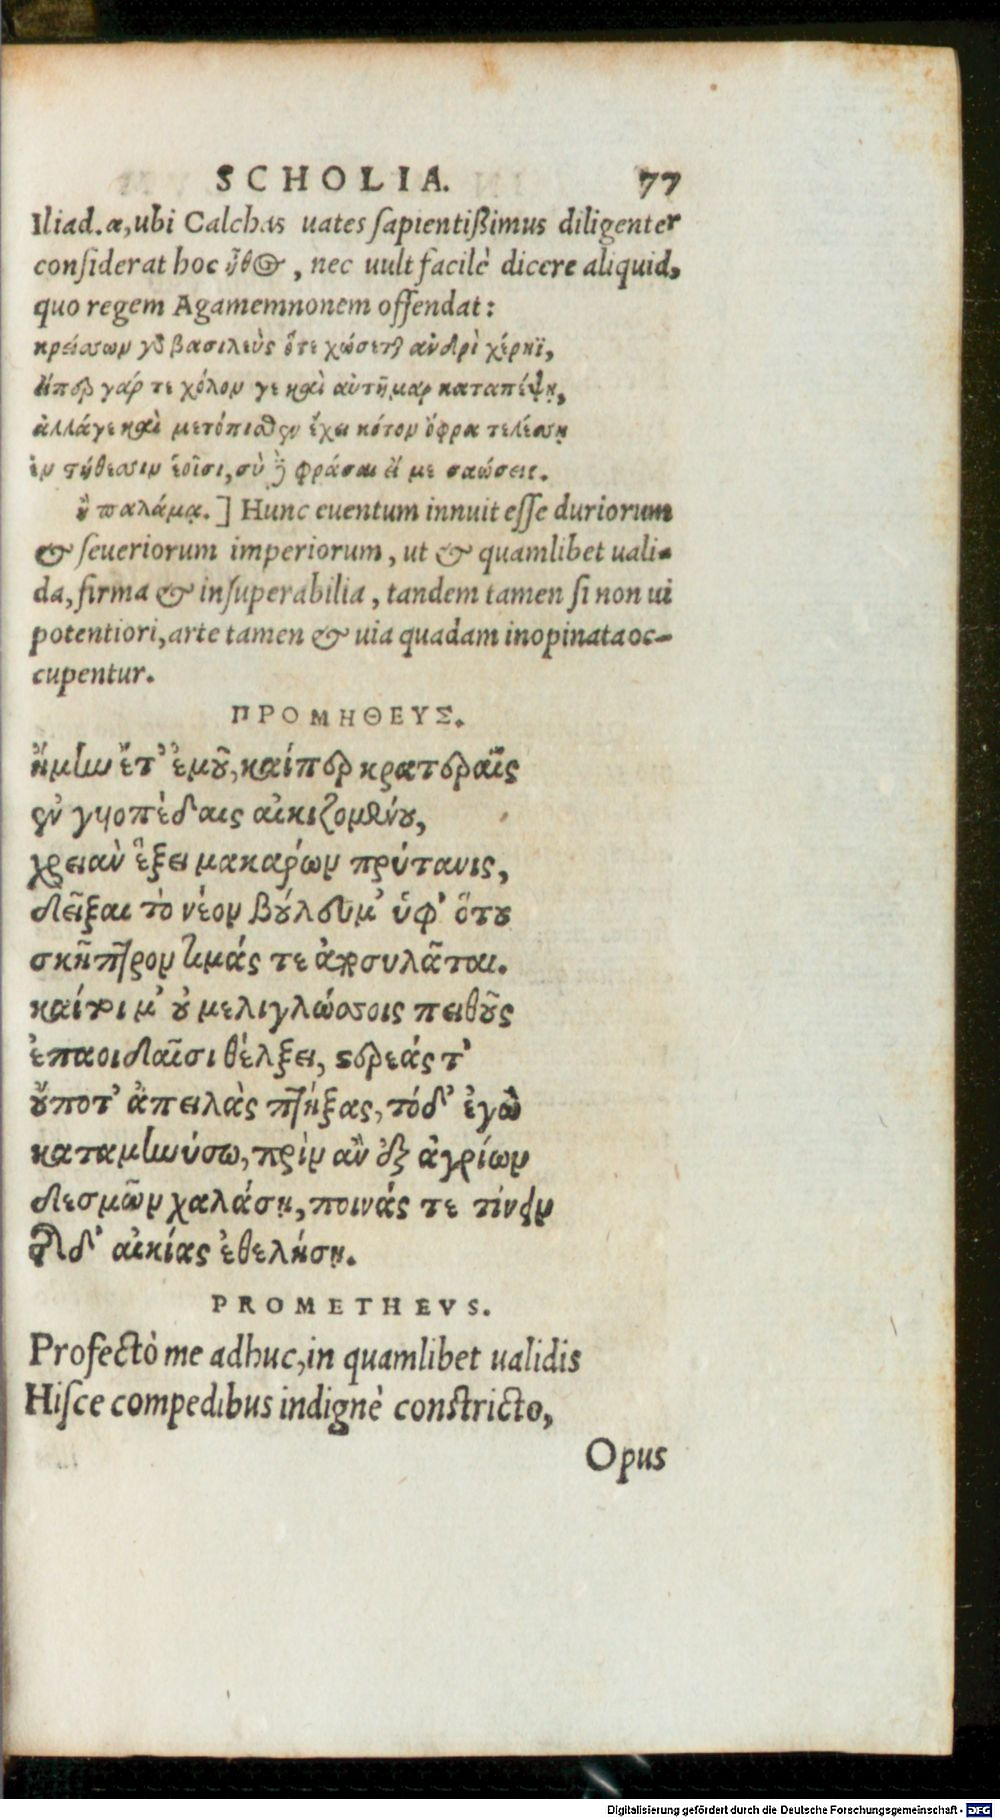 SCHOLIA. 77
Iliad.α, ubi Calchas uates sapientißimus diligenter
considerat hoc ἦθος, nec uult facilè dicere aliquid,
quo regem Agamemnonem offendat:
κρείσσων γὸ βασιλεὺς ὅτε χώσεται ἀνδρὶ χέρηϊ,
εἴπερ γάρ τε χόλον γε καὶ αὐτῆμαρ καταπέψῃ,
ἀλλάγε καὶ μετόπισθεν ἔχει κότον ὄφρα τελέσσῃ
ἐν στήθεσσιν ἑοῖσι, σὺ δὲ φράσαι εἴ με σαώσεις.
οὐ παλάμᾳ.] Hunc euentum innuit esse duriorum
& seueriorum imperiorum, ut & quamlibet uali-
da, firma & insuperabilia, tandem tamen si non ui
potentiori, arte tamen & uia quadam inopinata oc-
cupentur.
ΠΡΟΜΗΘΕΥΣ.
ἤμην ἔτ' ἐμοῦ, καίπερ κρατεραῖς
ἐν γυοπέδαις αἰκιζομένου,
χρειαν ἕξει μακάρων πρύτανις,
δεῖξαι τὸ νέον βούλευμ' ὑφ' ὅτου
σκῆπτρον τιμάς τε ἀποσυλᾶται.
καίτοι μ' οὐ μελιγλώσσοις πειθοῦς
ἐπαοιδαῖσι θέλξει, στερεάς τ'
οὔποτ' ἀπειλὰς πτήξας, τόδ' ἐγὼ
καταμηνύσω, πρὶν ἂν ἐξ ἀγρίων
δεσμῶν χαλάσῃ, ποινάς τε τίνειν
τῆςδ' αἰκίας ἐθελήσῃ.
PROMETHEVS.
Profectò me adhuc, in quamlibet ualidis
Hisce compedibus indignè constricto,
Opus
Digitalisierung gefördert durch die Deutsche Forschungsgemeinschaft - DFG